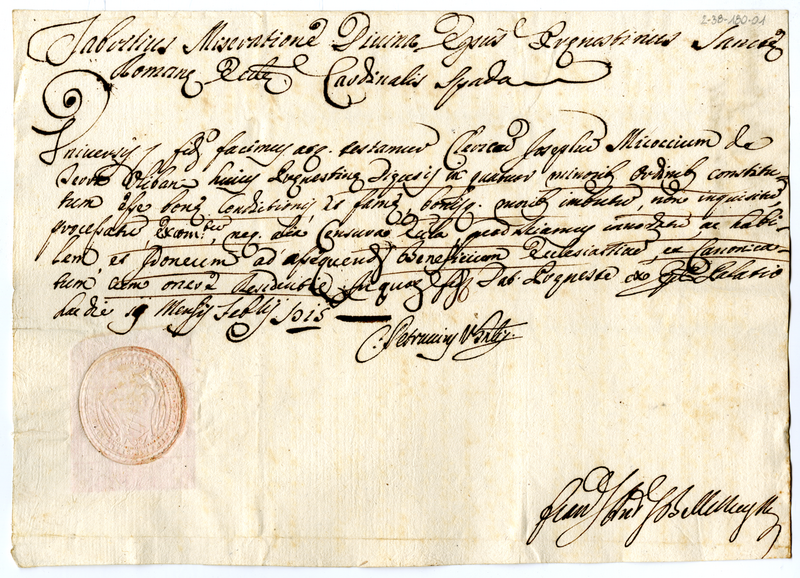 2-38-180-01
Fabritius Miseratione Divina Epus Prenestinus Sanctę
Romanę Eccle Cardinalis Spada
Universis fid. facimus atq. testamur Clericum Josephum Micoccium de
huius Prenestinę Dięcesis in quatuor minorib. Ordinib. constitu-
tum esse bonę Conditionis et famę bonisq. morib. imbutum, non inquisitum,
processatum, excom. neq. alia Censura Eccla innodatum ac habi-
lem, et Idoneum ad assequend. Beneficium Ecclesiasticum, et Canonica-
tum cum onere Residentię. In quor. fid. Dat. Preneste ex Palatio
hac die 19 Mensis 1715
C. Petrucius